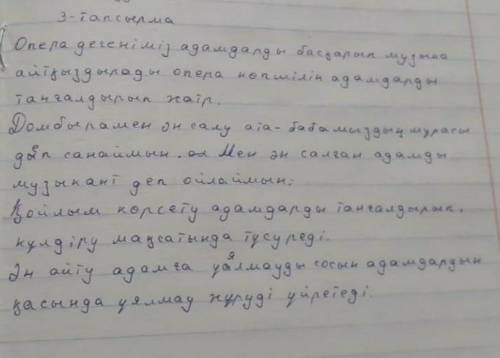 3-тапсырма
Опера дегеніміз адамдарды басқарып музыка
айтқыздырады опера көпшілік адамдарды
таңғалдырып жатір.
Домбырамен ән салу ата-бабамыздың мұрасы
деп санаймын. Мен ән салған адамды
музыкант деп ойлаймын.
Қойлым көрсету адамдарды таңғалдырып,
күлдіру мақсатында түсуреді.
Ән айту адамға ұялмауды сосын адамдардын
қасында ұялмау жүруді үйретеді.